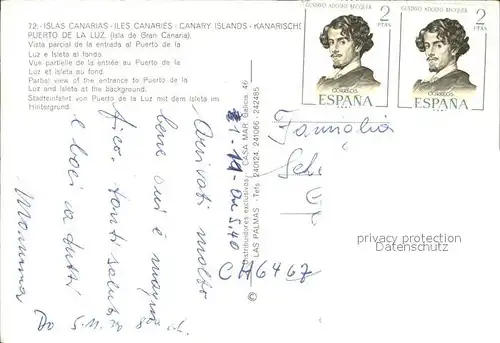 72.-ISLAS CANARIAS - ILES CANARIES - CANARY ISLANDS - KANARISCHE
PUERTO DE LA LUZ. (Isla de Gran Canaria).
Vista parcial de la entrada al Puerto de la
Luz e Isleta al fondo.
Vue partielle de la entrée au Puerto de la
Luz et Isleta au fond.
Partial view of the entrance to Puerto de la
Luz and Isleta at the background.
Stadteinfahrt von Puerto de la Luz mit dem Isleta im
Hintergrund.
GUSTAVO ADOLFO BECQUER
2
PTAS
CORREOS
ESPAÑA
GUSTAVO ADOLFO BECQUER
2
PTAS
CORREOS
ESPAÑA
Distribuidores exclusivos: CASA MAR Galicia, 46
LAS PALMAS - Tefs. 240124, 241066 - 242485
Arrivati molto
bene qui è
tanti saluti
e baci a tutti
Mamma
Famiglia
CH 6467
privacy protection
©